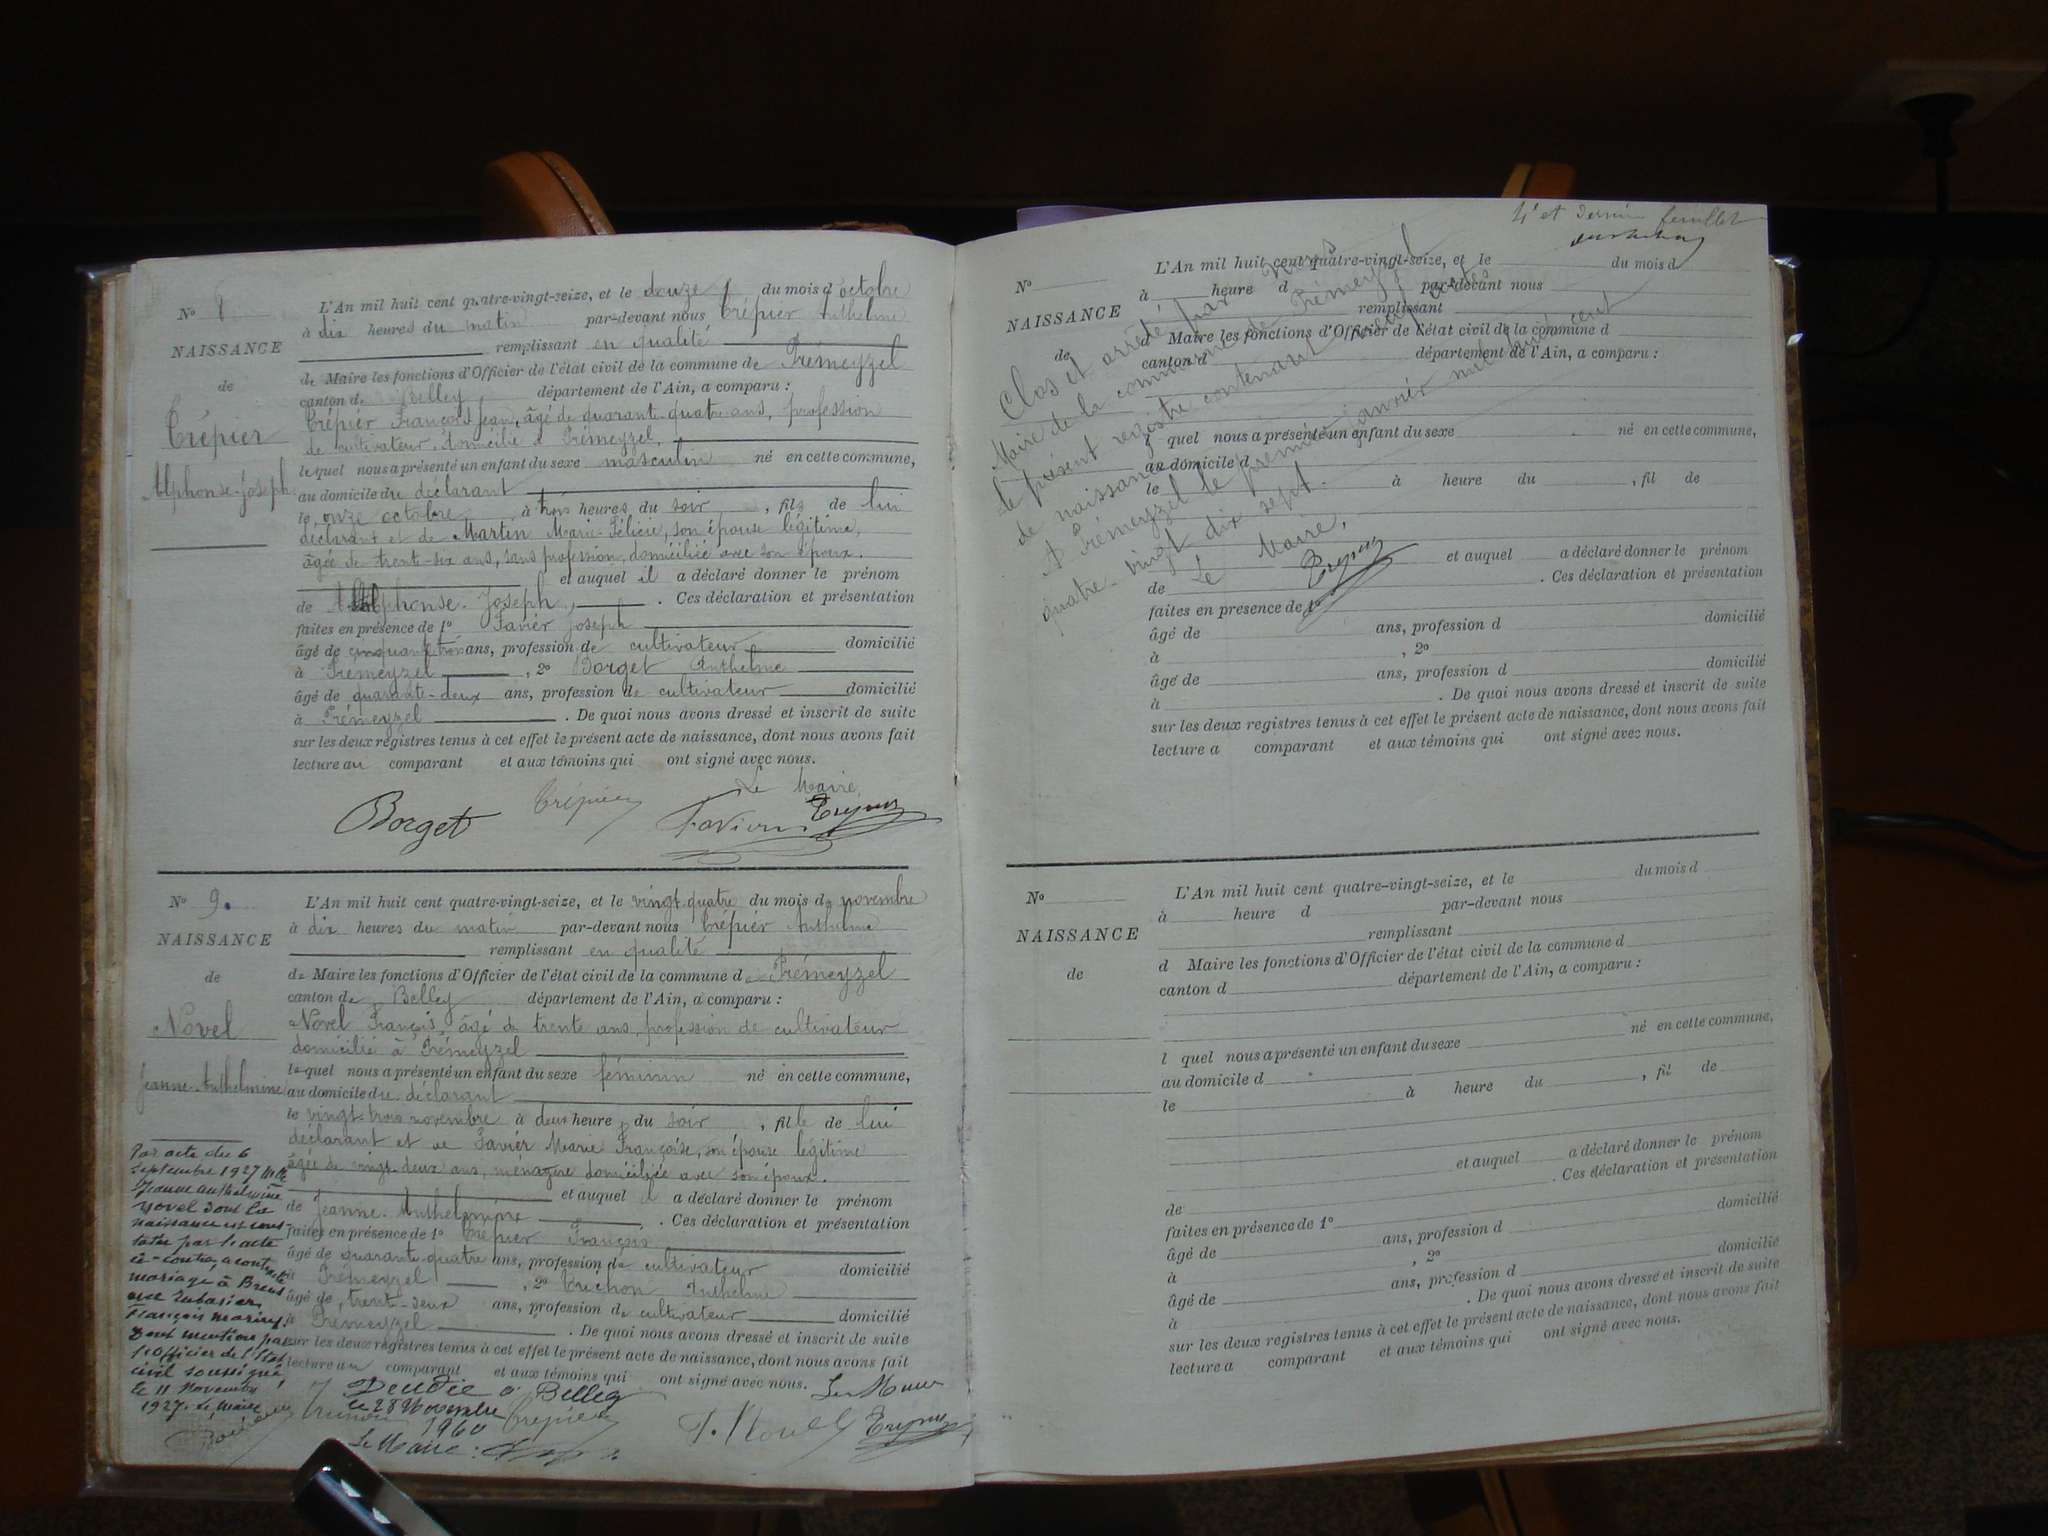 No
NAISSANCE
de
Trépier
Alphonse-Joseph
L'An mil huit cent quatre-vingt-seize, et le douze du mois d'octobre
à dix heures du matin par-devant nous Trépier Anthelme
remplissant en qualité
de Maire les fonctions d'Officier de l'état civil de la commune de Prémeyzel
canton de Belley département de l'Ain, a comparu :
Trépier François Jean, âgé de quarante-quatre ans, profession
de cultivateur, domicilié à Prémeyzel,
lequel nous a présenté un enfant du sexe masculin né en cette commune,
au domicile du déclarant
le onze octobre à trois heures du soir, fils de lui
déclarant et de Martin Marie-Félicie, son épouse légitime,
âgée de trente-six ans, sans profession, domiciliée avec son époux.
et auquel il a déclaré donner le prénom
de Alphonse-Joseph. Ces déclaration et présentation
faites en présence de 1º Favier Joseph
âgé de cinquante trois ans, profession de cultivateur domicilié
à Prémeyzel, 2º Borget Anthelme
âgé de quarante-deux ans, profession de cultivateur domicilié
à Prémeyzel. De quoi nous avons dressé et inscrit de suite
sur les deux registres tenus à cet effet le présent acte de naissance, dont nous avons fait
lecture au comparant et aux témoins qui ont signé avec nous.
Le Maire,
Borget Trépier Favier
No 9.
NAISSANCE
de
Novel
Jeanne-Anthelmine
L'An mil huit cent quatre-vingt-seize, et le vingt-quatre du mois de novembre
à dix heures du matin par-devant nous Trépier Anthelme
remplissant en qualité
de Maire les fonctions d'Officier de l'état civil de la commune de Prémeyzel
canton de Belley département de l'Ain, a comparu :
Novel François, âgé de trente ans, profession de cultivateur
domicilié à Prémeyzel
lequel nous a présenté un enfant du sexe féminin né en cette commune,
au domicile du déclarant
le vingt-trois novembre à deux heures du soir, fille de lui
déclarant et de Favier Marie Françoise, son épouse légitime
âgée de vingt-deux ans, ménagère domiciliée avec son époux.
et auquel il a déclaré donner le prénom
de Jeanne-Anthelmine. Ces déclaration et présentation
faites en présence de 1º Trépier François
âgé de quarante-quatre ans, profession de cultivateur domicilié
à Prémeyzel, 2º Truchon Anthelme
âgé de trente-deux ans, profession de cultivateur domicilié
à Prémeyzel. De quoi nous avons dressé et inscrit de suite
sur les deux registres tenus à cet effet le présent acte de naissance, dont nous avons fait
lecture au comparant et aux témoins qui ont signé avec nous. Le Maire
Par acte du 6
Septembre 1927 Mlle
Jeanne Anthelmine
Novel dont la
naissance est cons-
tatée par l'acte
ci-contre, a contracté
mariage à Brens
avec
François
Dont mention par
l'Officier de l'Etat
civil soussigné
le 11 Novembre
1927. Le Maire
Décédée à Belley
le 28 Novembre
1960
Le Maire :
Trépier
F. Novel
4e et dernier feuillet
No
NAISSANCE
de
L'An mil huit cent quatre-vingt-seize, et le du mois d
à heure d par-devant nous
remplissant
d Maire les fonctions d'Officier de l'état civil de la commune d
canton d département de l'Ain, a comparu :
l quel nous a présenté un enfant du sexe né en cette commune,
au domicile d
le à heure du , fil de
et auquel a déclaré donner le prénom
de . Ces déclaration et présentation
faites en présence de 1º
âgé de ans, profession d domicilié
à , 2º
âgé de ans, profession d domicilié
à . De quoi nous avons dressé et inscrit de suite
sur les deux registres tenus à cet effet le présent acte de naissance, dont nous avons fait
lecture a comparant et aux témoins qui ont signé avec nous.
Clos et arrêté par Nous
Maire de la commune de Prémeyzel
le présent registre contenant neuf actes
de naissance
A Prémeyzel le premier janvier mil huit cent
quatre-vingt dix sept.
Le Maire,
No
NAISSANCE
de
L'An mil huit cent quatre-vingt-seize, et le du mois d
à heure d par-devant nous
remplissant
d Maire les fonctions d'Officier de l'état civil de la commune d
canton d département de l'Ain, a comparu :
l quel nous a présenté un enfant du sexe né en cette commune,
au domicile d
le à heure du , fil de
et auquel a déclaré donner le prénom
de . Ces déclaration et présentation
faites en présence de 1º
âgé de ans, profession d domicilié
à , 2º
âgé de ans, profession d domicilié
à . De quoi nous avons dressé et inscrit de suite
sur les deux registres tenus à cet effet le présent acte de naissance, dont nous avons fait
lecture a comparant et aux témoins qui ont signé avec nous.